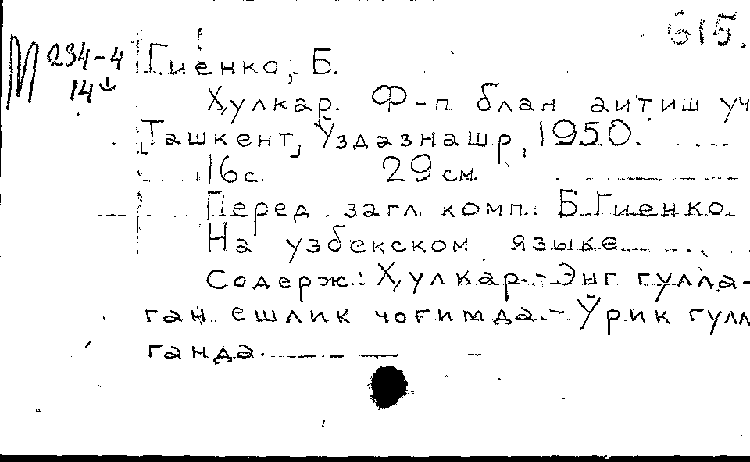 615.
М 234-4
14
Гиенко, Б.
Ҳулкар. Ф-п блан аитиш уч
Ташкент, Уздазнашр, 1950.
16 с. 29 см.
Перед загл. комп.: Б. Гиенко
На узбекском языке
Содерж.: Ҳулкар.- Энг гулла-
ган ешлик чоғимда.- Ўрик гулл
ганда